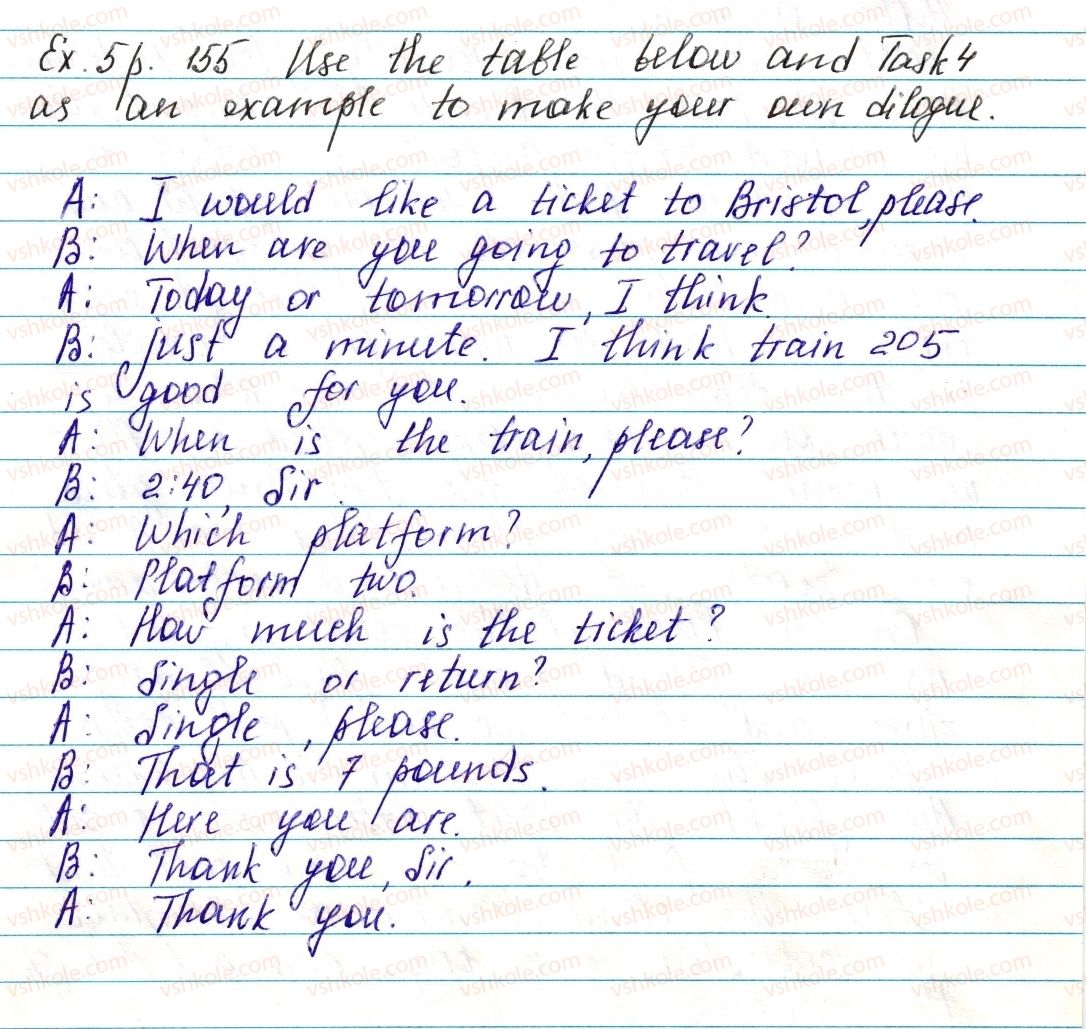 Ex. 5 p. 155 Use the table below and Task 4
as an example to make your own dilogue.
A: I would like a ticket to Bristol, please.
B: When are you going to travel?
A: Today or tomorrow, I think.
B: just a minute. I think train 205
is good for you.
A: When is the train, please?
B: 2:40, Sir.
A: Which platform?
B: Platform two.
A: How much is the ticket?
B: Single or return?
A: Single, please.
B: That is 7 pounds.
A: Here you are.
B: Thank you, Sir.
A: Thank you.